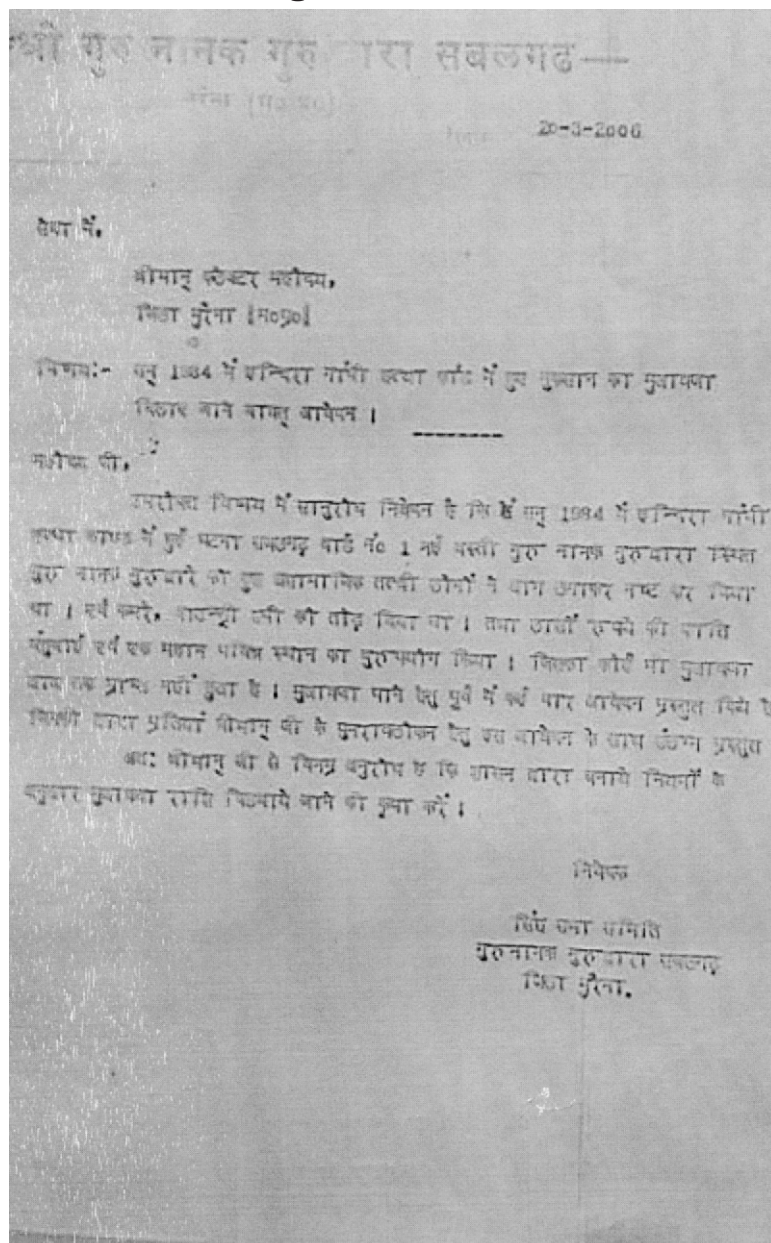 श्री गुरु नानक गुरुद्वारा सबलगढ
20-3-2006
सेवा में,
श्रीमान् कलेक्टर महोदय,
जिला मुरैना [म०प्र०]
विषय:- सन् 1984 में इन्दिरा गांधी हत्या कांड में हुए नुकसान का मुआवजा
दिलाए जाने बाबत् आवेदन ।
महोदय जी,
उपरोक्त विषय में सानुरोध निवेदन है कि सन् 1984 में इन्दिरा गांधी
हत्या काण्ड में हुई घटना सबलगढ़ वार्ड नं० 1 नई बस्ती गुरु नानक गुरुद्वारा स्थित
गुरु नानक गुरुद्वारे को कुछ असामाजिक तत्वों लोगों ने आग लगाकर नष्ट कर दिया
था । एवं कमरे, बाउन्ड्री को तोड़ दिया था । तथा लाखों रुपये की क्षति
पहुंचाई एवं एक महान पवित्र स्थान का दुरुपयोग किया । जिसका कोई भी मुआवजा
आज तक प्राप्त नहीं हुआ है । मुआवजा पाने हेतु पूर्व में कई बार आवेदन प्रस्तुत किये है
जिसकी छाया प्रतियां श्रीमान् जी के पुनरावलोकन हेतु इस आवेदन के साथ संलग्न प्रस्तुत
अत: श्रीमान् जी से विनम्र अनुरोध है कि शासन द्वारा बनाये नियमों के
अनुसार मुआवजा राशि दिलवाये जाने की कृपा करें ।
निवेदक
सिंघ सभा समिति
गुरुनानक गुरुद्वारा सबलगढ़
जिला मुरैना.